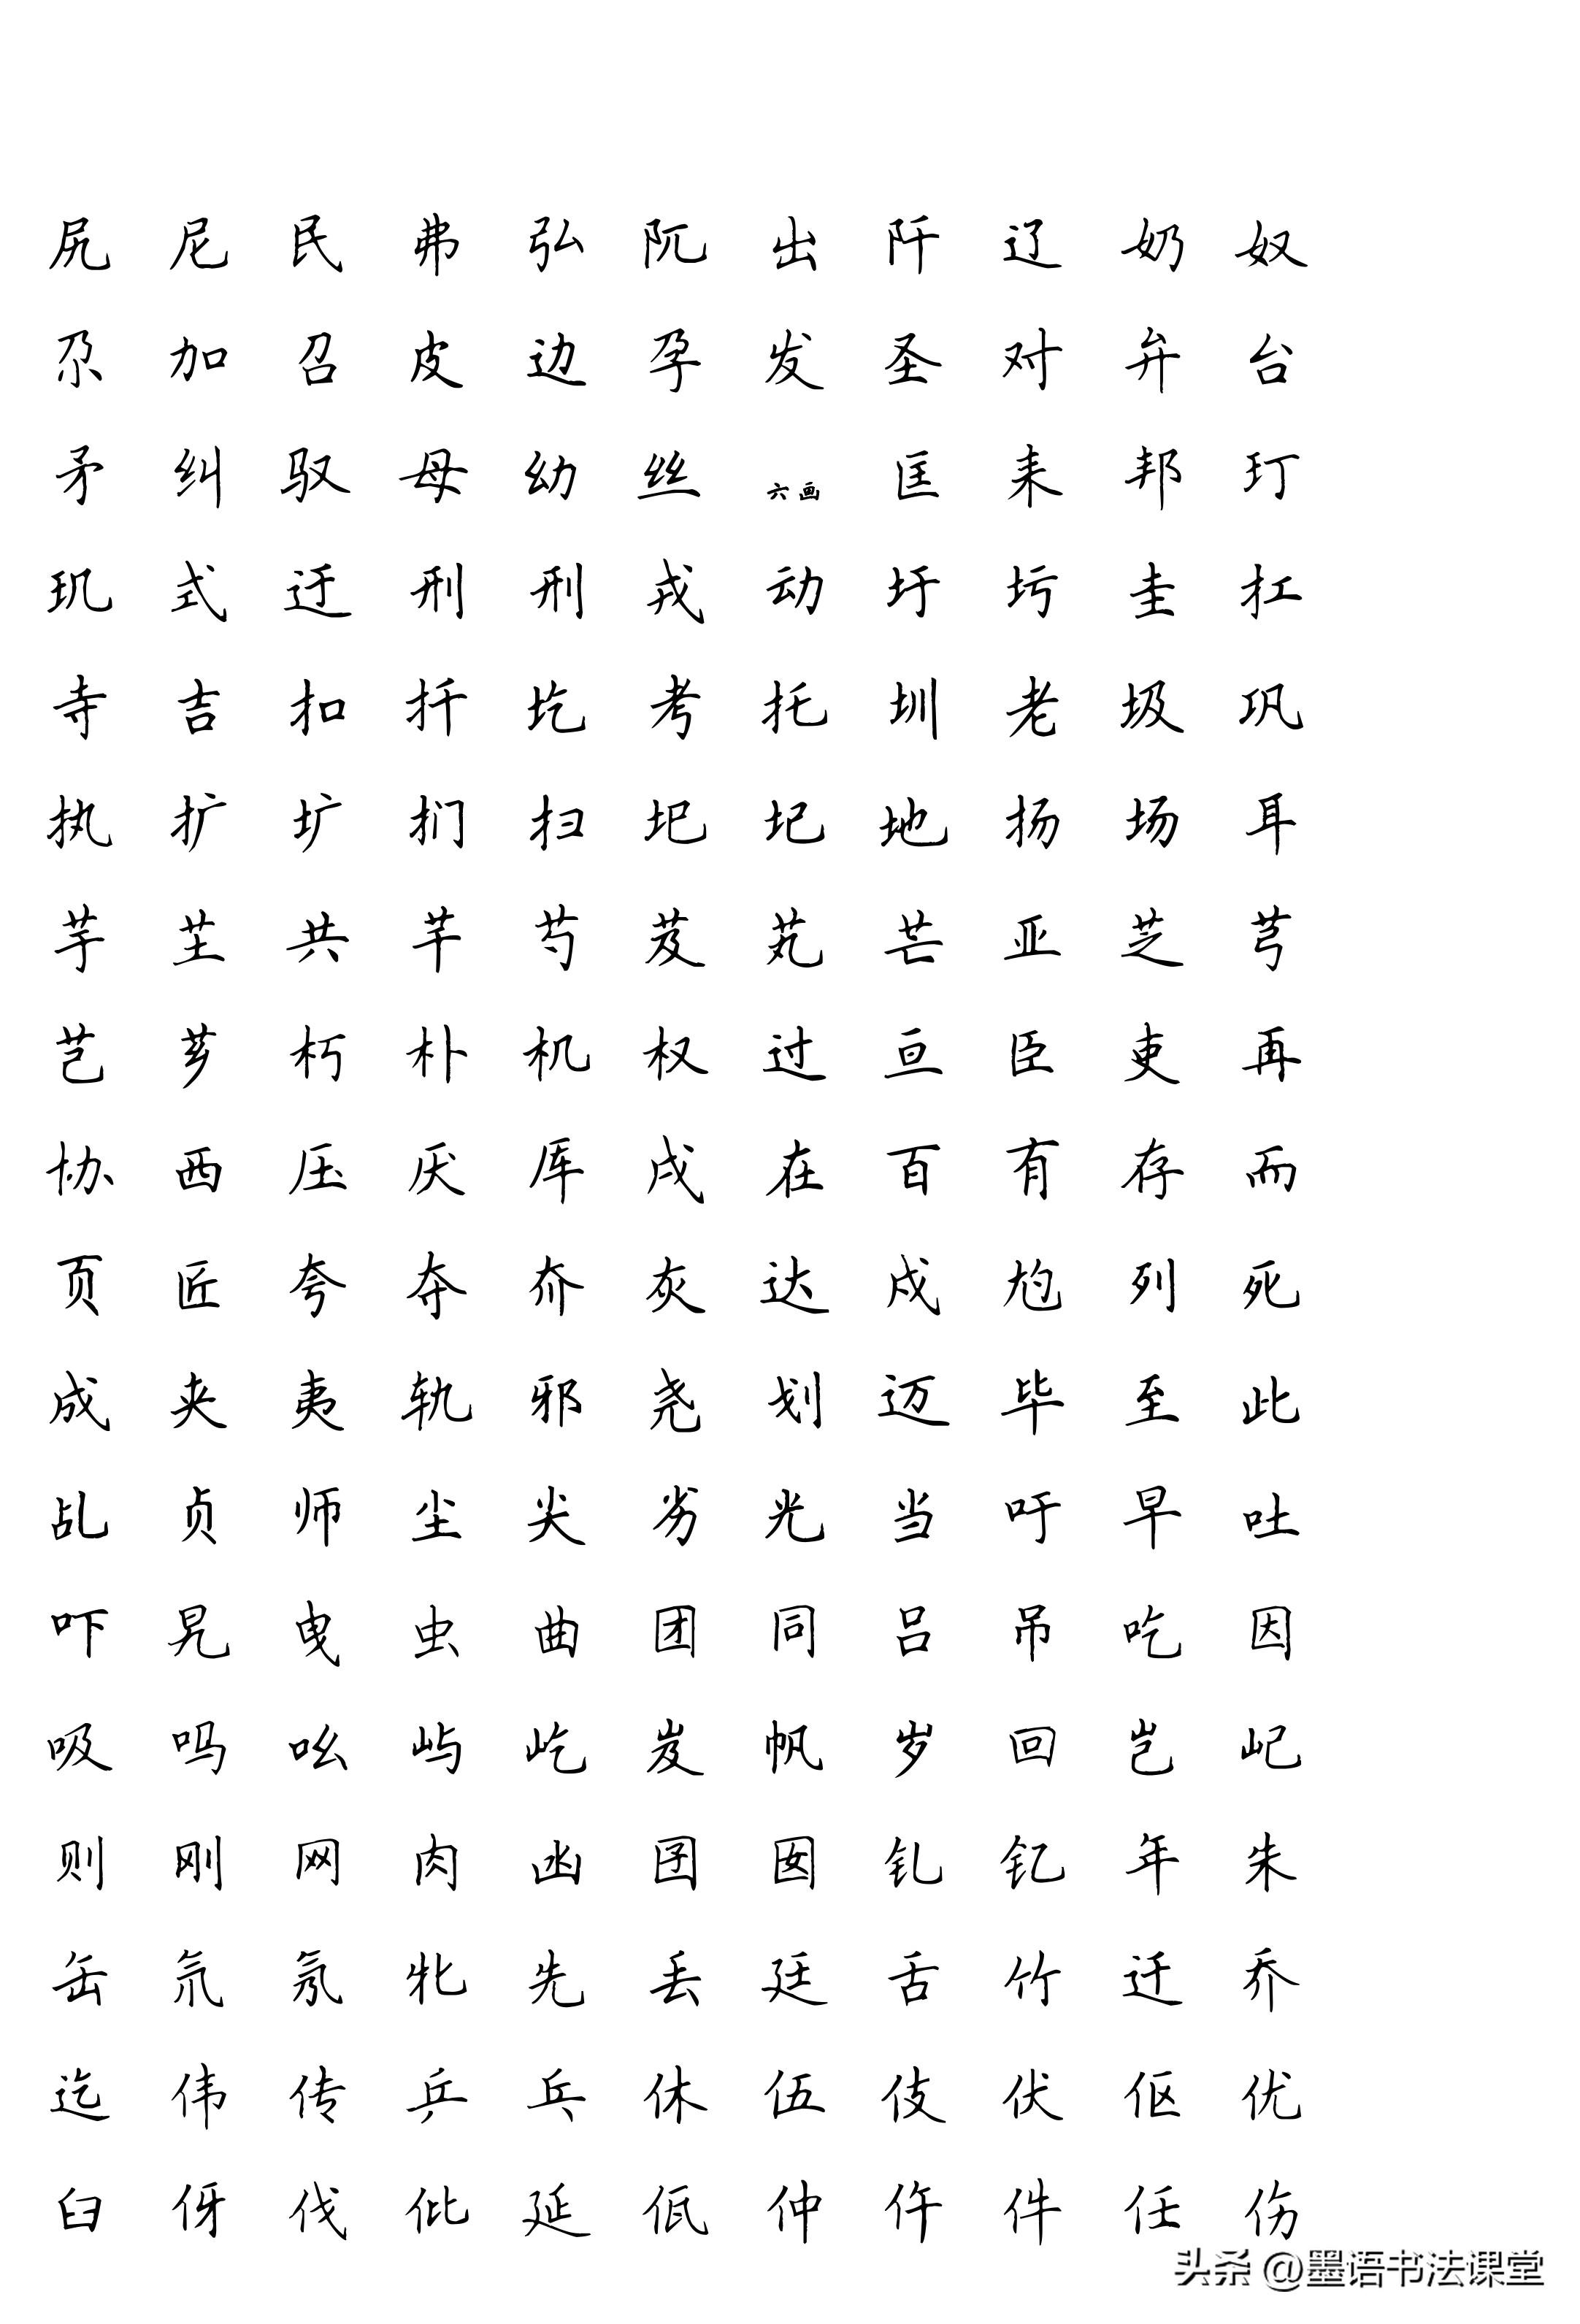 尻 尼 民 弗 弘 阢 出 阡 辽 奶 奴
尕 加 召 皮 边 孕 发 圣 对 弁 台
矛 纠 驭 母 幼 丝 六画 匡 耒 邦 玎
玑 式 迂 刑 刑 戎 动 圩 圬 圭 扛
寺 吉 扣 扦 圪 考 托 圳 老 圾 巩
执 扩 圹 扪 扫 圯 圮 地 扬 场 耳
芋 芏 共 芊 芍 芨 芄 芒 亚 芝 芎
芑 芗 朽 朴 机 权 过 亘 臣 吏 再
协 西 压 厌 厍 戌 在 百 有 存 而
页 匠 夸 夺 夼 灰 达 戍 尥 列 死
成 夹 夷 轨 邪 尧 划 迈 毕 至 此
乩 贞 师 尘 尖 劣 光 当 吁 早 吐
吓 晃 曳 虫 曲 团 同 吕 吊 吃 因
吸 吗 吆 屿 屹 岌 帆 岁 回 岂 屺
则 刚 网 肉 凼 囝 囡 钆 钇 年 朱
缶 氘 氖 牝 先 丢 廷 舌 竹 迁 乔
迄 伟 传 乒 乓 休 伍 伎 伏 伛 优
臼 伢 伐 仳 延 低 仲 仵 件 任 伤
头条 @墨语书法课堂